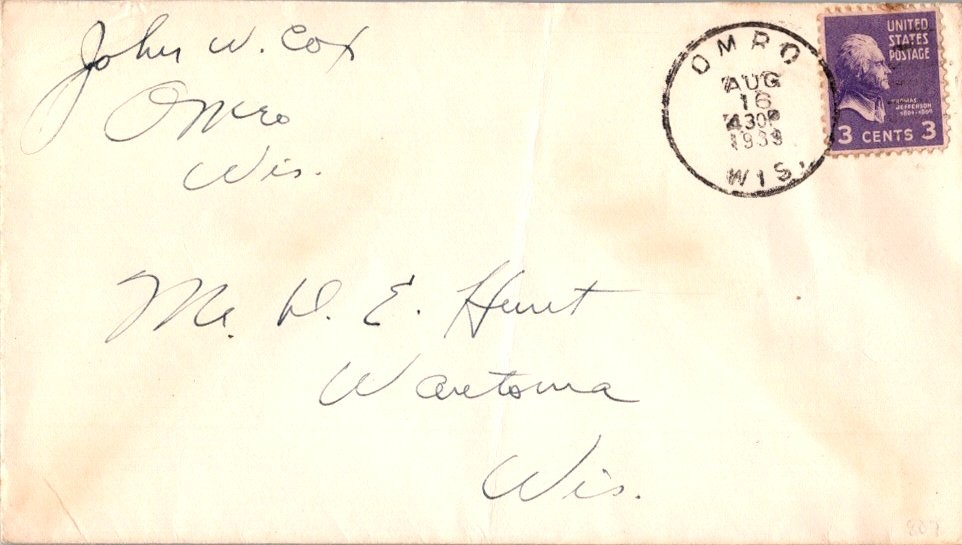 John W. Cox
Omro
Wis.
OMRO
AUG
16
430P
1939
WIS.
UNITED
STATES
POSTAGE
THOMAS
JEFFERSON
1801-1809
3 CENTS 3
Mr. D. E. Hunt
Wautoma
Wis.
207